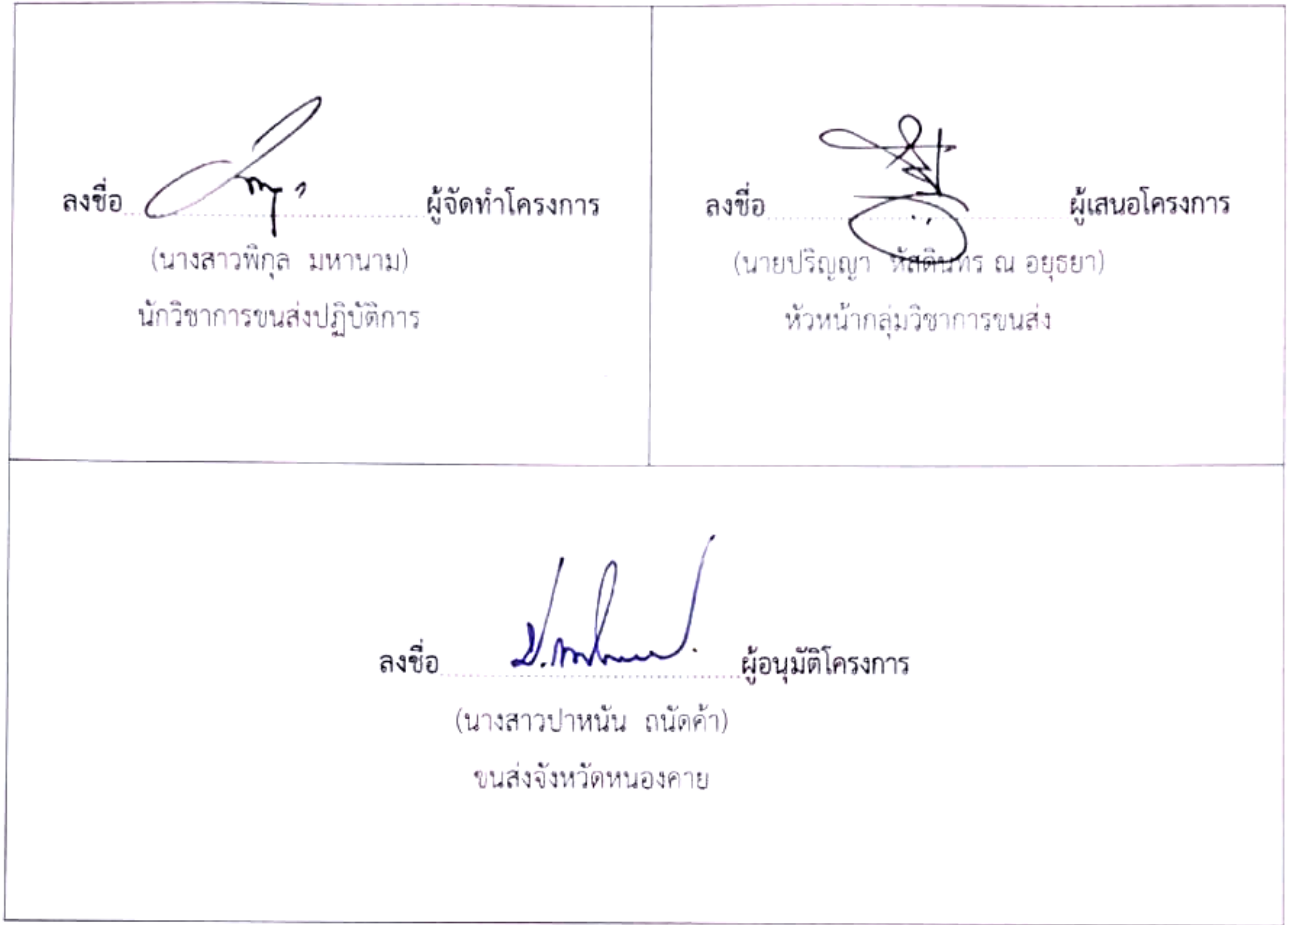 ลงชื่อ ผู้จัดทำโครงการ
(นางสาวพิกุล มหานาม)
นักวิชาการขนส่งปฏิบัติการ
ลงชื่อ ผู้เสนอโครงการ
(นายปริญญา หัสดินทร ณ อยุธยา)
หัวหน้ากลุ่มวิชาการขนส่ง
ลงชื่อ ผู้อนุมัติโครงการ
(นางสาวปาหนัน ถนัดค้า)
ขนส่งจังหวัดหนองคาย